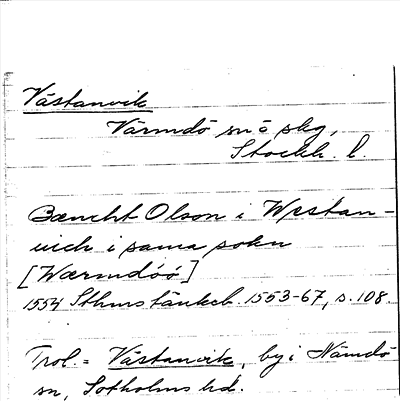 Västanvik
Värmdö sn o skg,
Stockh. l.
Bæncht Olson i Westan-
uich i sama sokn
[Wærmdöö]
1554 Sthms tänkeb. 1553-67, s. 108.
Trol. = Västanvik, by i Nämdö
sn, Sotholms hd.